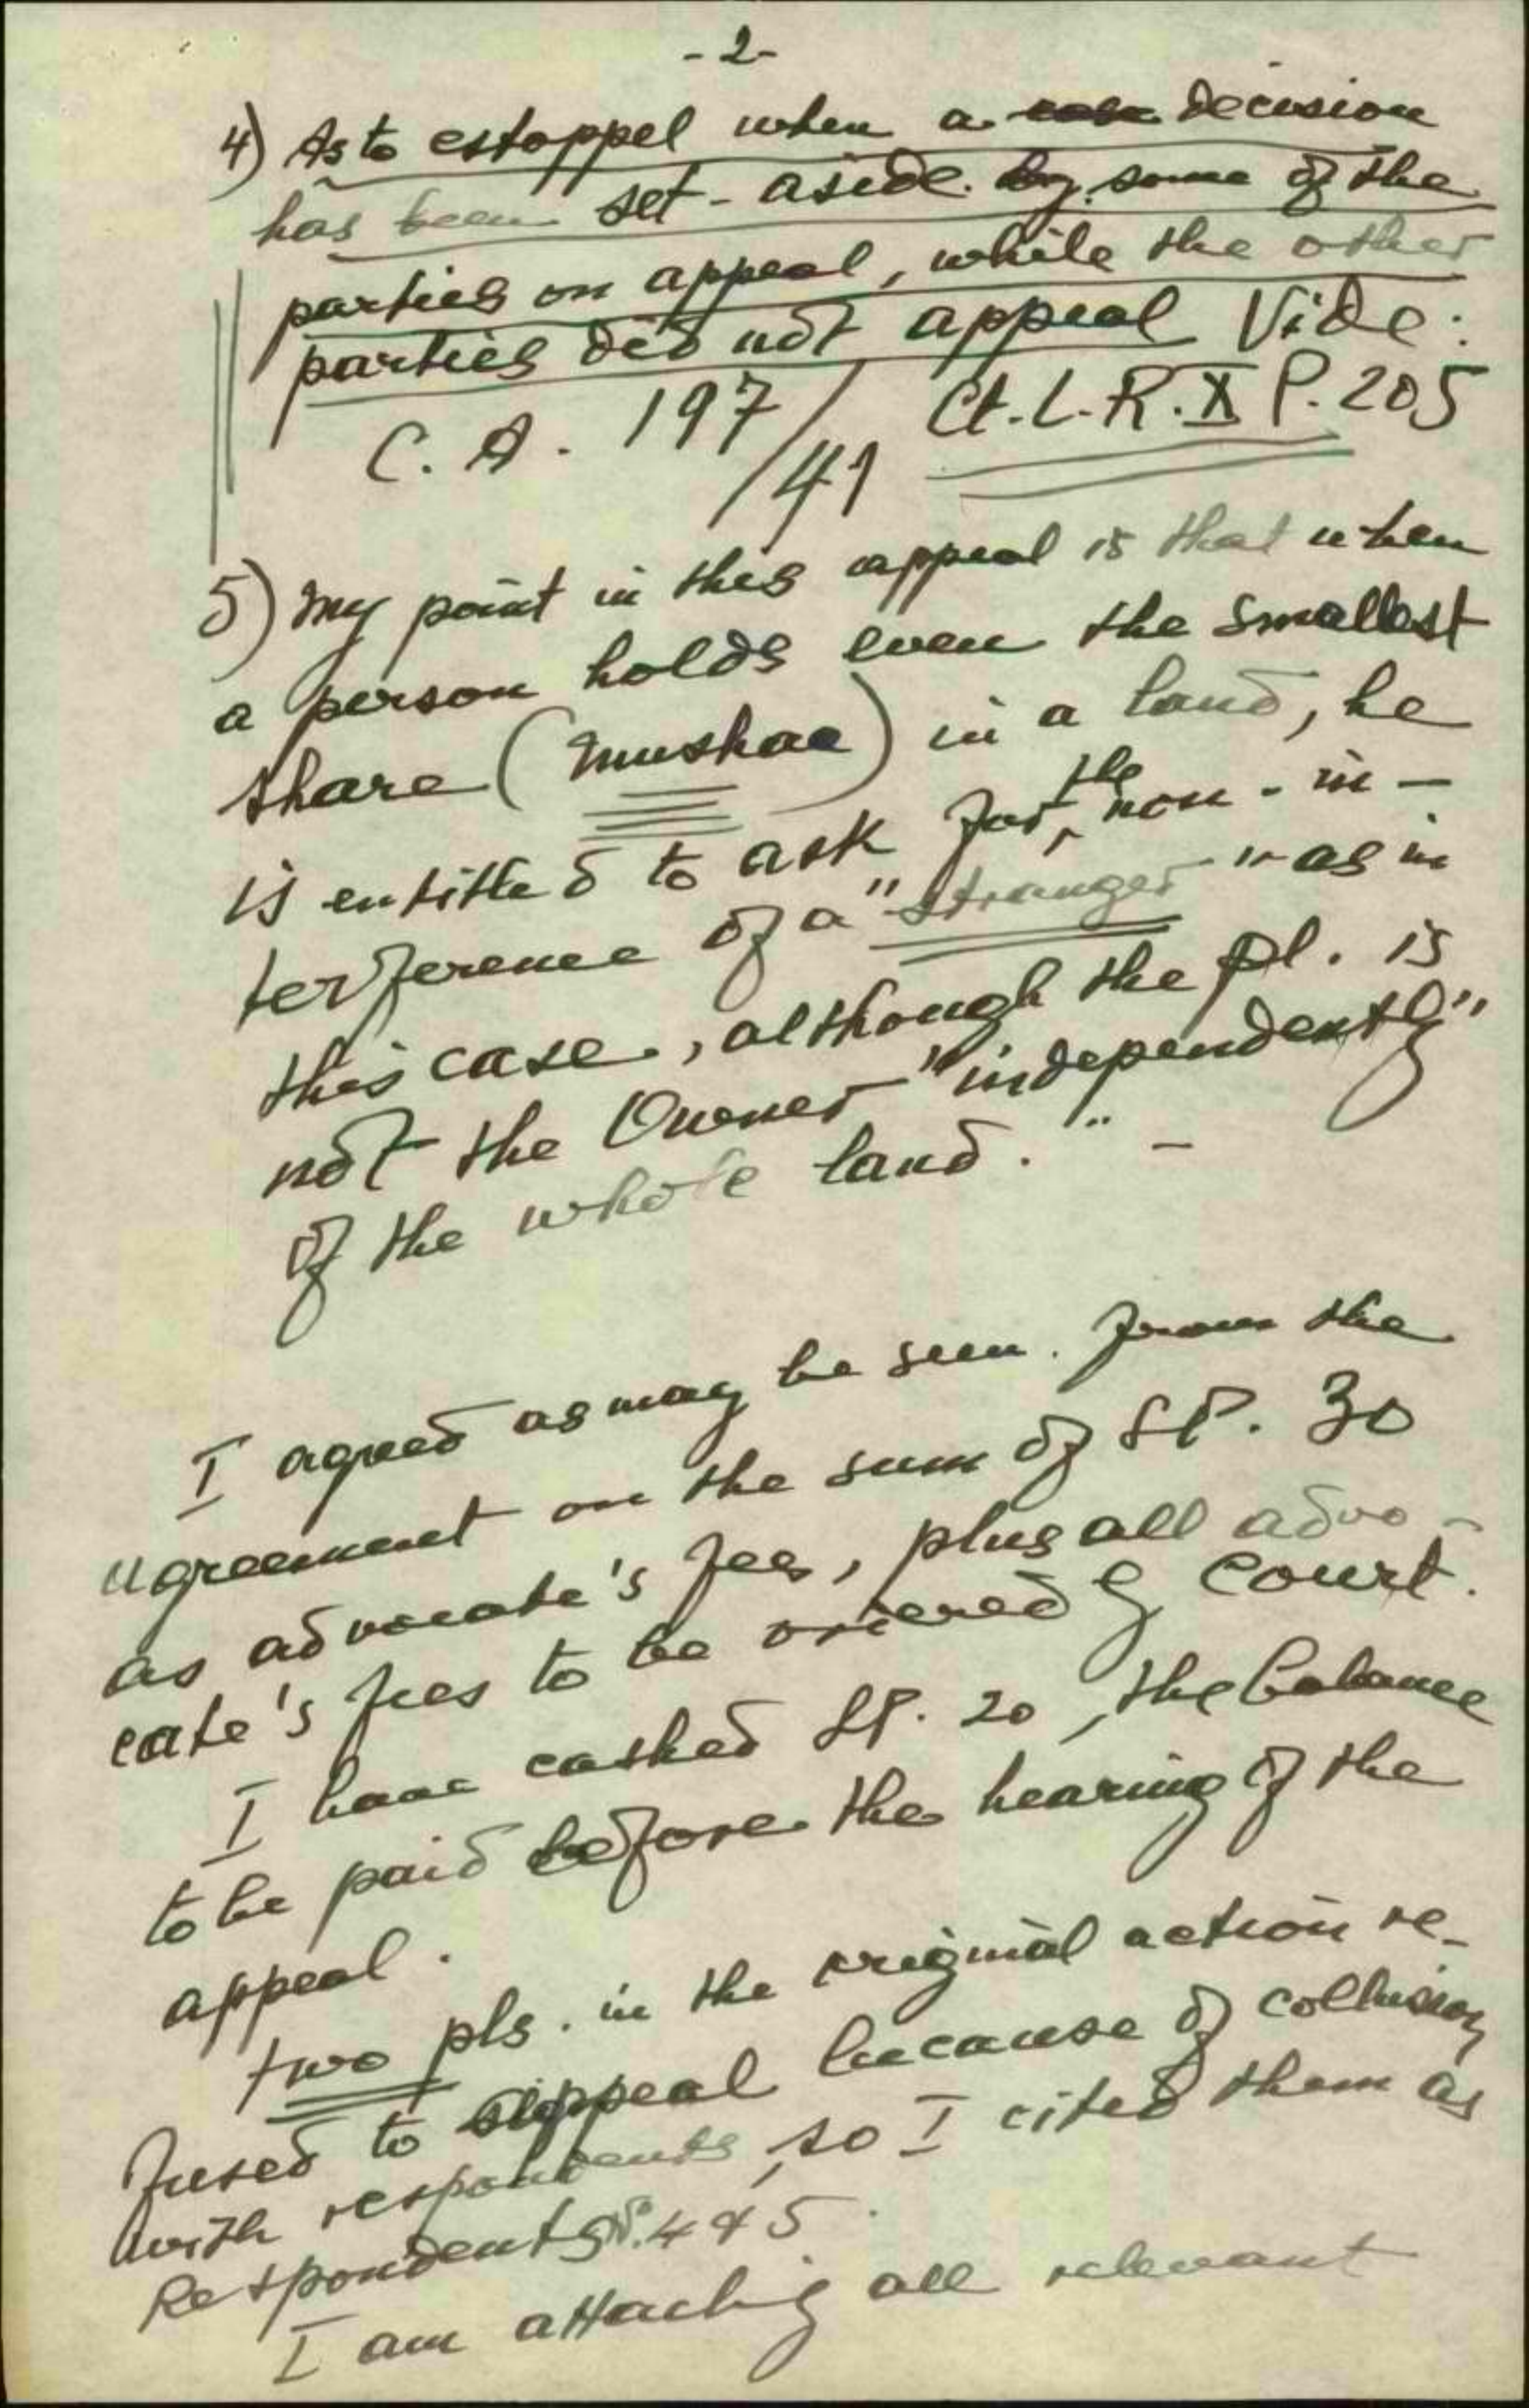 -2-
4) As to estoppel when a decision
has been set-aside by some of the
parties on appeal, while the other
parties did not appeal Vide:
C. A. 197/41 Ct.L.R.X P.205
5) My point in this appeal is that when
a person holds even the smallest
share (mushaa) in a land, he
is entitled to ask for the non-in-
terference of a "stranger" as in
this case, although the pl. is
not the Owner "independently"
of the whole land." -
I agreed as may be seen from the
agreement on the sum of £P. 30
as advocate's fees, plus all advo-
cate's fees to be ordered by Court.
I have cashed £P. 20, the balance
to be paid before the hearing of the
appeal.
two pls. in the original action re-
fused to appeal because of collusion
with respondents, so I cited them as
Respondents N. 4 & 5.
I am attachig all relevant